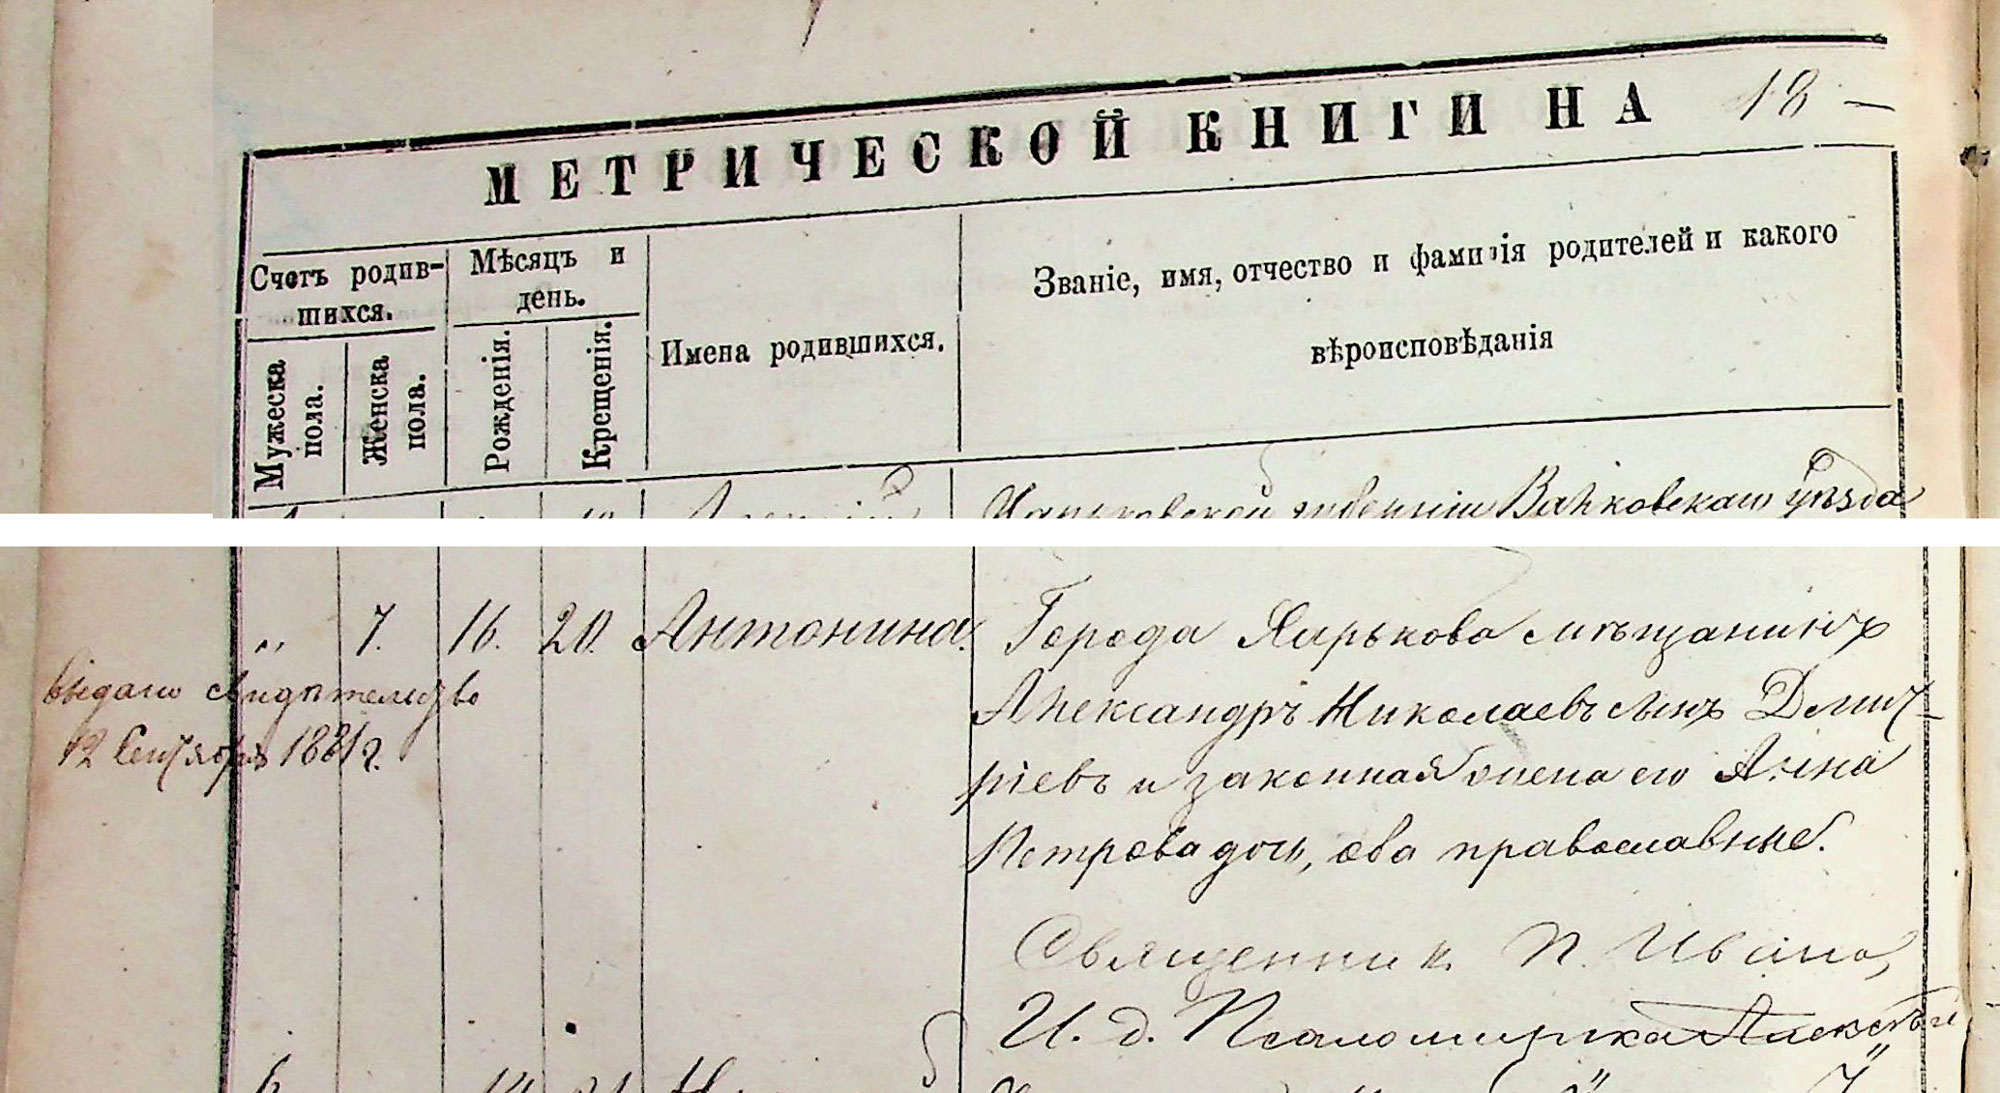 МЕТРИЧЕСКОЙ КНИГИ НА 18 —
Счетъ родив-
шихся.
Мѣсяцъ и
день.
Мужеска
пола.
Женска
пола.
Рожденія.
Крещенія.
Имена родившихся.
Званіе, имя, отчество и фамилія родителей и какого
вѣроисповѣданія
Харьковской губерніи Валковскаго уѣзда
„ 7. 16. 20. Антонина. Города Харькова мѣщанинъ
Александръ Николаевъ сынъ Дмит-
ріевъ и законная жена его Анна
Петрова дочь, оба православные.
выдано свидѣтельство
12 Сентября 1881 г.
Священникъ П. Ивано
И. д. Псаломщика Алексѣй